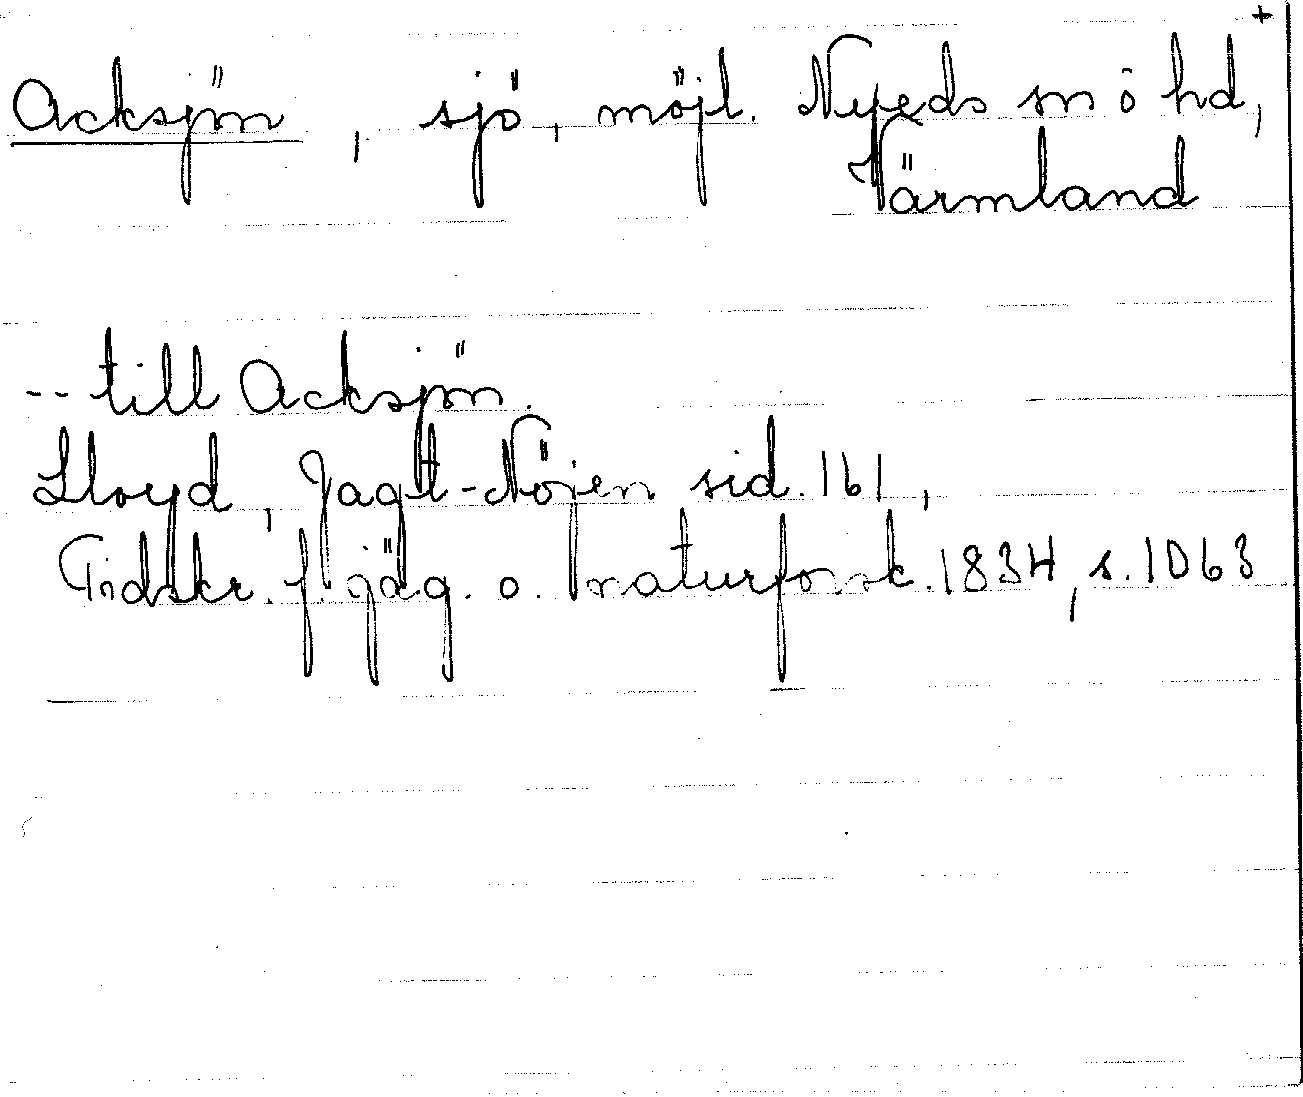 +
Acksjön, sjö, möjl. Nyeds sn ö hd,
Värmland
-- till Acksjön.
Lloyd, Jagt-Nöjen sid. 161,
Tidskr. f. jäg. o. naturforsk. 1834, s. 1063